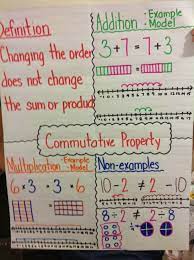 Definition
Changing the order
does not change
the sum or product
Addition -Example
-Model
3+7 = 7+3
Commutative Property
Multiplication -Example
-Model
6·3 = 3·6
Non-examples
10-2 ≠ 2-10
8÷2 ≠ 2÷8